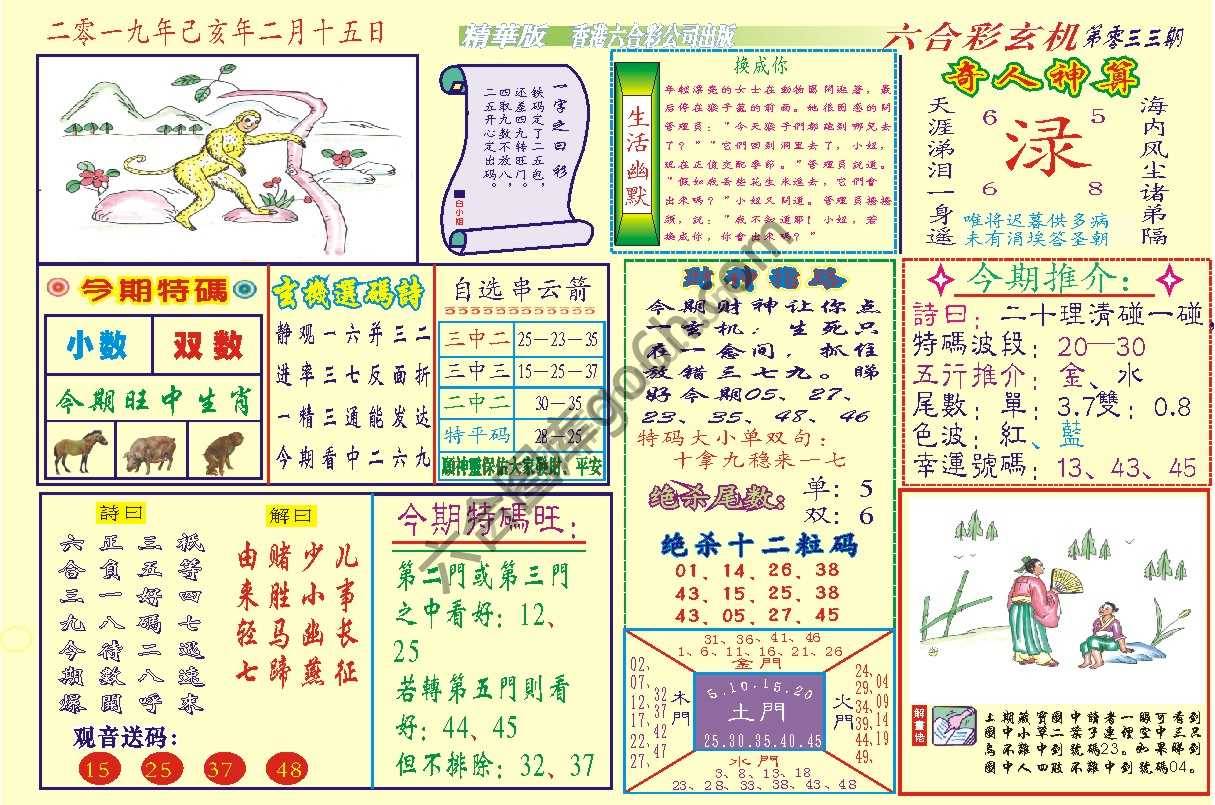 二零一九年己亥年二月十五日
精華版
香港六合彩公司出版
六合彩玄机
第零三三期
一字之曰彩
铁码定了二五包，
还差四九转旺门。
四取九数不放八，
二五开心定出码。
白小姐
生活幽默
换成你
年輕漂亮的女士在動物園閒逛著，最
后停在猴子籠的前面。她很困惑的問
管理員："今天猴子們都跑到哪兒去
了？""它們回到洞里去了，小姐，
現在正值交配季節。"管理員説道。
"假如我丢些花生米進去，它們會
出來嗎？"小姐又問道。管理員搔搔
頭，説："我不知道耶！小姐，若
换成你，你會出來嗎？"
奇人神算
天涯涕泪一身遥
海内风尘诸弟隔
6 5
渌
6 8
唯将迟暮供多病
未有涓埃答圣朝
今期特碼
小数
双数
今期旺中生肖
玄機選碼詩
静观一六并三二
进率三七反面折
一精三通能发达
今期看中二六九
自选串云箭
三中二 25—23—35
三中三 15—25—37
二中二 30—35
特平码 28—25
願神靈保佑大家發財、平安
今期财神让你点
一玄机：生死只
在一念间，抓住
放错三七九。睇
好今期05、27、
23、35、48、46
特码大小单双句：
十拿九稳来一七
绝杀尾数：
单：5
双：6
绝杀十二粒码
01、14、26、38
43、15、25、38
43、05、27、45
今期推介：
詩曰：二十理清碰一碰，
特碼波段：20—30
五行推介：金、水
尾數：單：3.7雙：0.8
色波：紅、藍
幸運號碼：13、43、45
詩曰
六合三九今期爆
正負一八待數開
三五好碼二八呼
祇等四七迅速来
解曰
由来轻七
赌胜马蹄
少小幽燕
儿事长征
观音送码：
15 25 37 48
今期特碼旺：
第二門或第三門
之中看好：12、
25
若轉第五門則看
好：44、45
但不排除：32、37
31、36、41、46
1、6、11、16、21、26
金門
02、07、12、17、22、27、
32、37、42、47
木門
5.10.15.20
土門
25.30.35.40.45
火門
24、29、34、39、44、49、
04、09、14、19
水門
3、8、13、18
23、28、33、38、43、48
解畫佬
上期藏寶圖中讀者一眼可看到
圖中小草二葉子連埋空中三只
鳥不難中到號碼23。如果睇到
圖中人四肢不難中到號碼04。